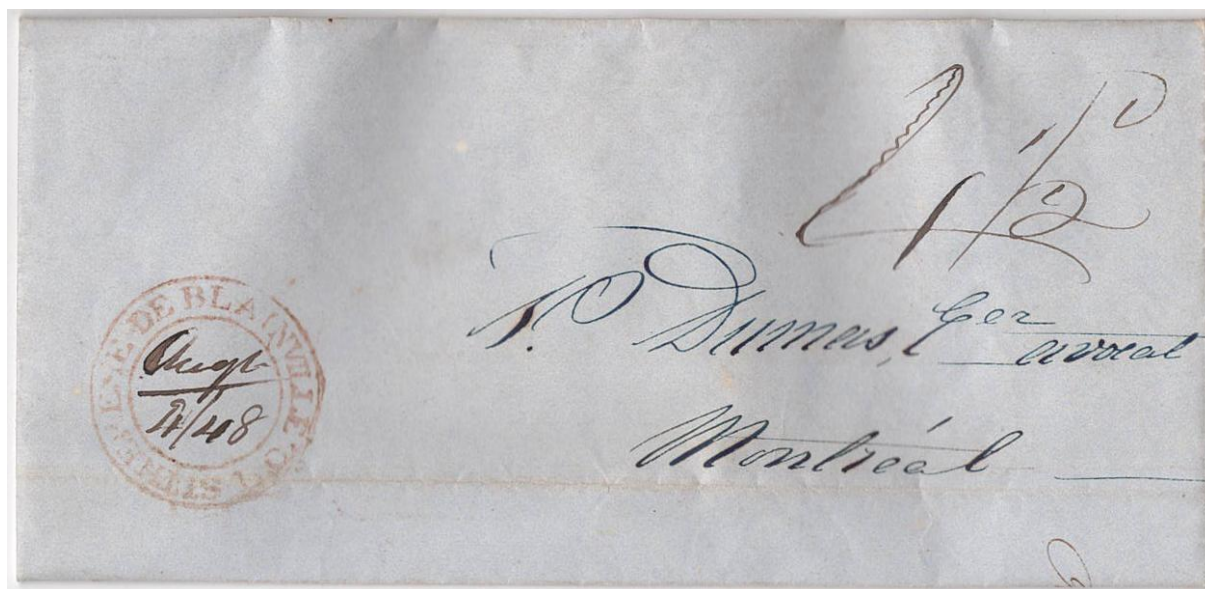 4 1/2 D
N. Dumas, Ecr
avocat
Montréal
STHE. ESTE. DE BLAINVILLE L.C.
Augt
4/48